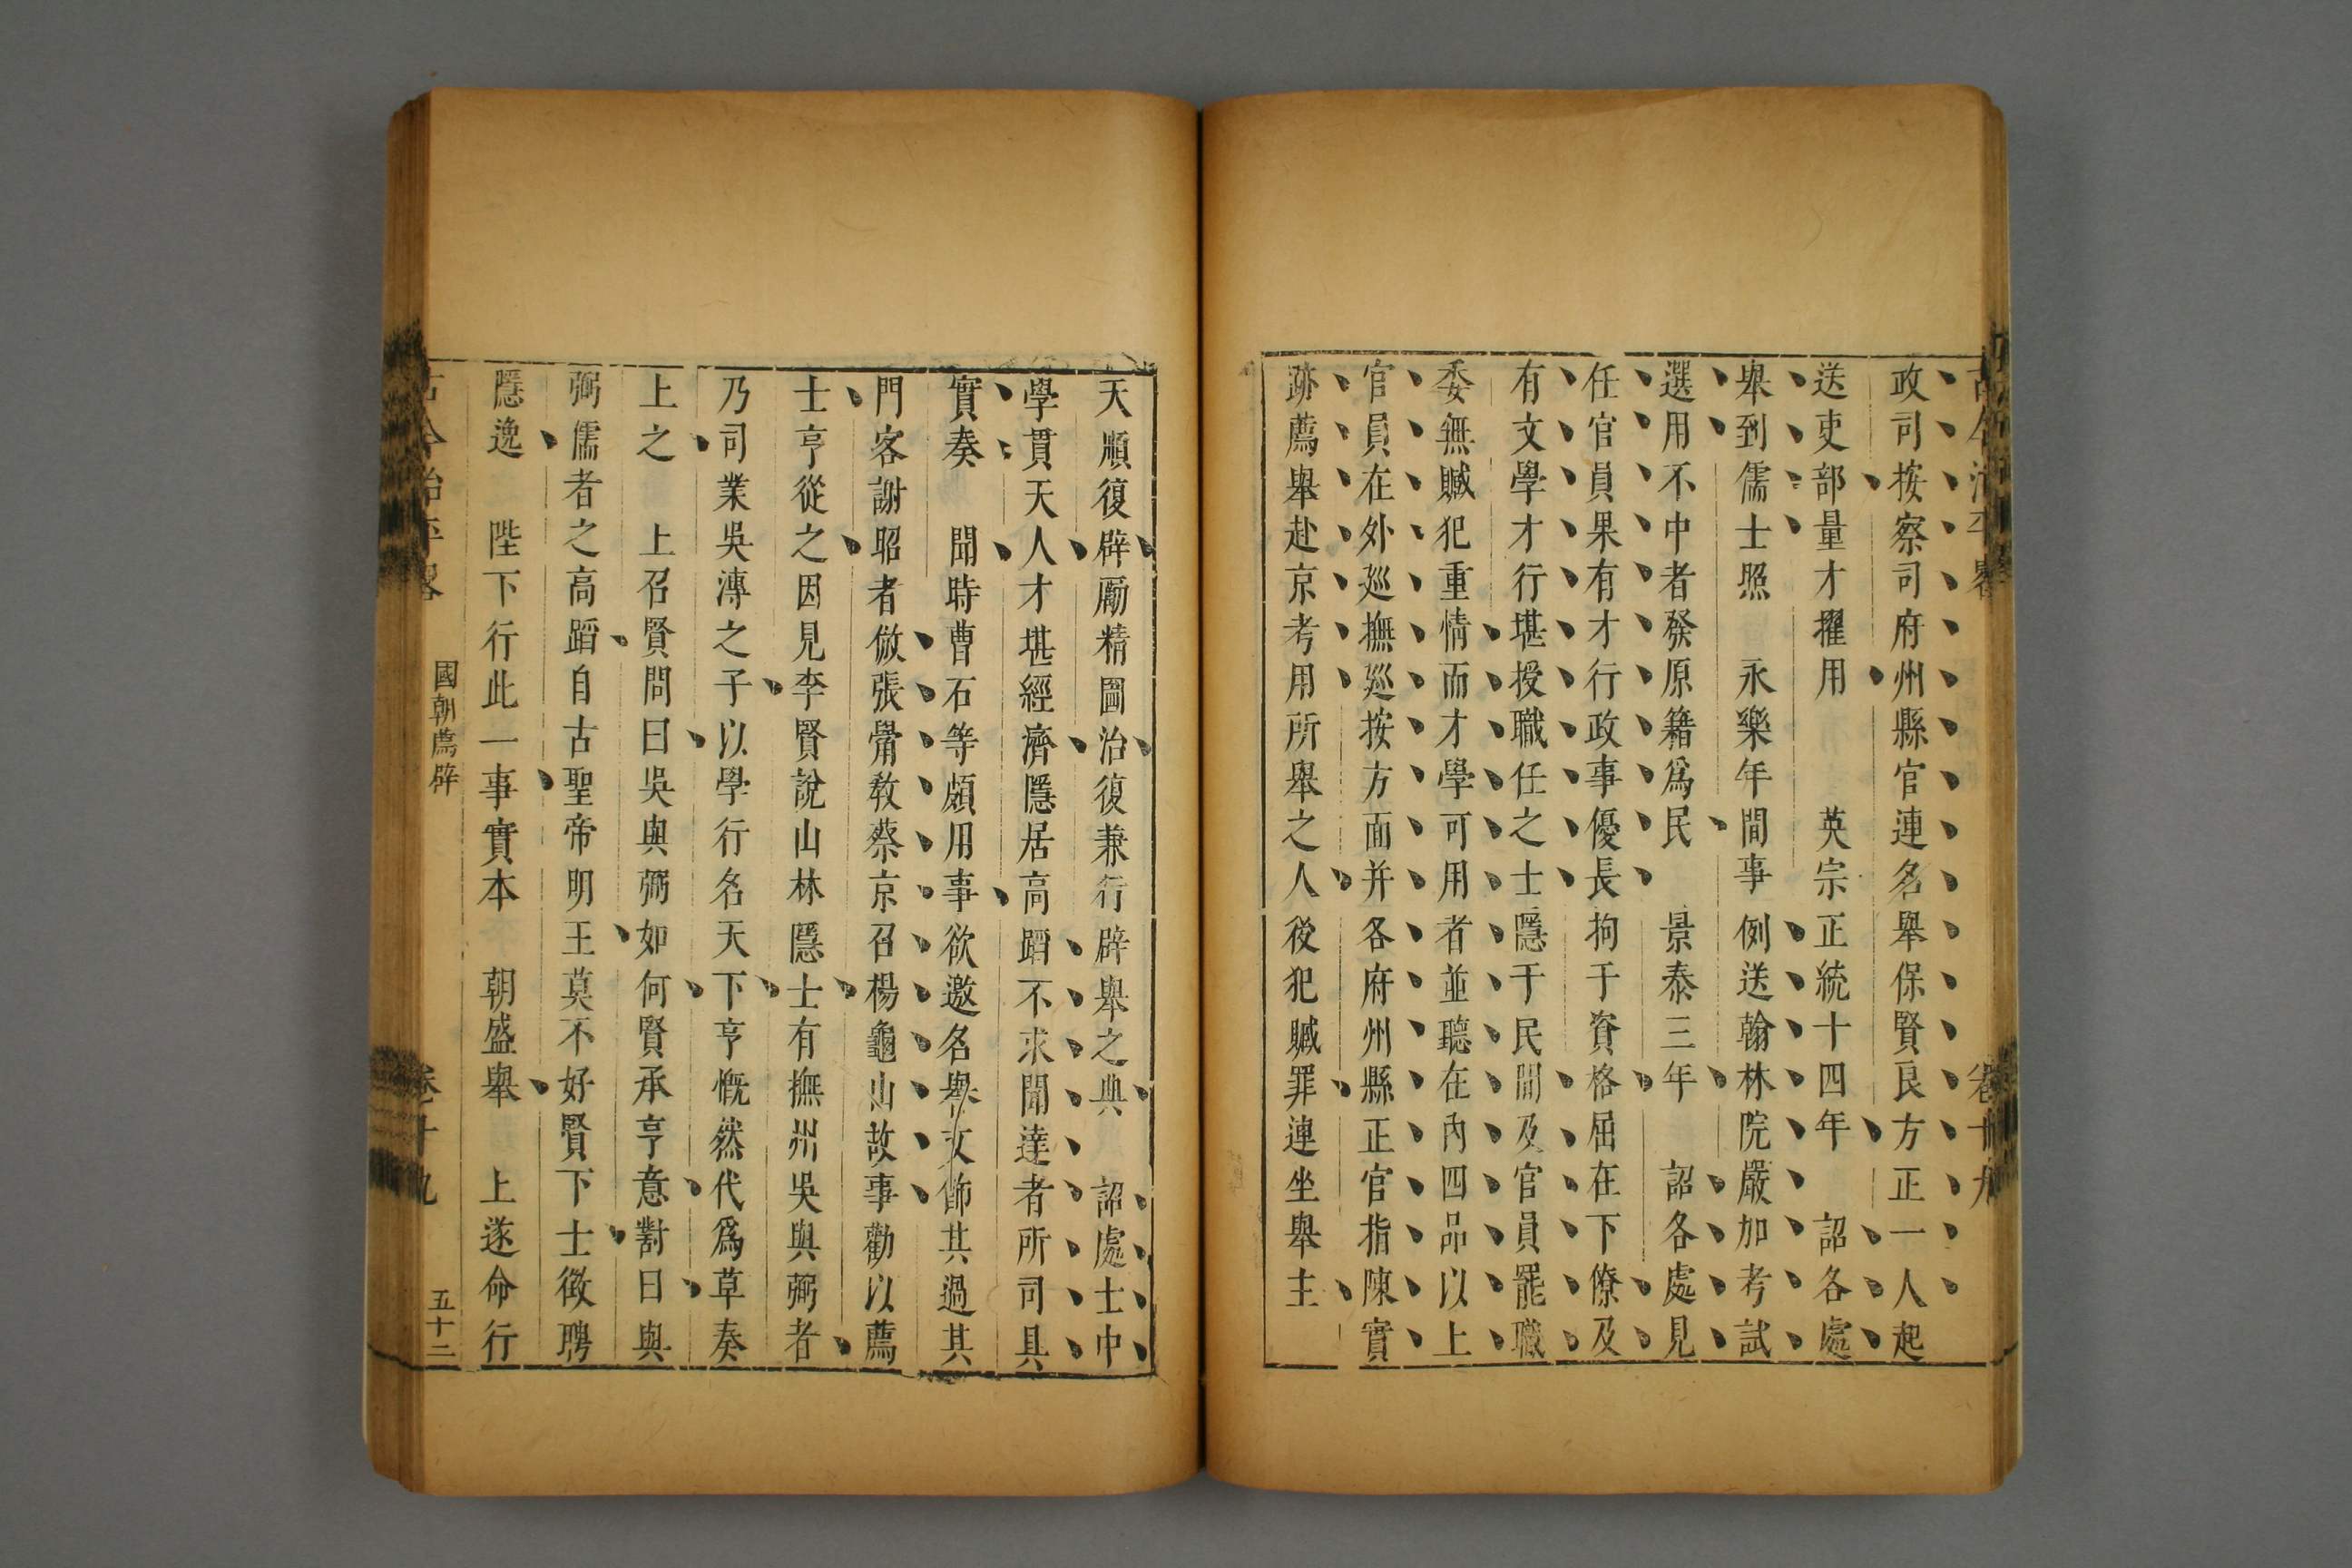 古今治平畧 卷十九
政司按察司府州縣官連名舉保賢良方正一人起
送吏部量才擢用 英宗正統十四年 詔各處
舉到儒士照 永樂年間事例送翰林院嚴加考試
選用不中者發原籍爲民 景泰三年 詔各處見
任官員果有才行政事優長拘于資格屈在下僚及
有文學才行堪授職任之士隱于民間及官員罷職
委無贓犯重情而才學可用者並聽在內四品以上
官員在外廵撫廵按方面并各府州縣正官指陳實
跡薦舉赴京考用所舉之人後犯贓罪連坐舉主
天順復辟勵精圖治復兼行辟舉之典 詔處士中
學貫天人才堪經濟隱居高蹈不求聞達者所司具
實奏 聞時曹石等頗用事欲邀名譽文飾其過其
門客謝昭者倣張觷教蔡京召楊龜山故事勸以薦
士亨從之因見李賢說山林隱士有撫州吳與弼者
乃司業吳溥之子以學行名天下亨慨然代爲草奏
上之 上召賢問曰吳與弼如何賢承亨意對曰與
弼儒者之高蹈自古聖帝明王莫不好賢下士徵聘
隱逸 陛下行此一事實本 朝盛舉 上遂命行
古今治平畧 國朝薦辟 卷十九 五十二